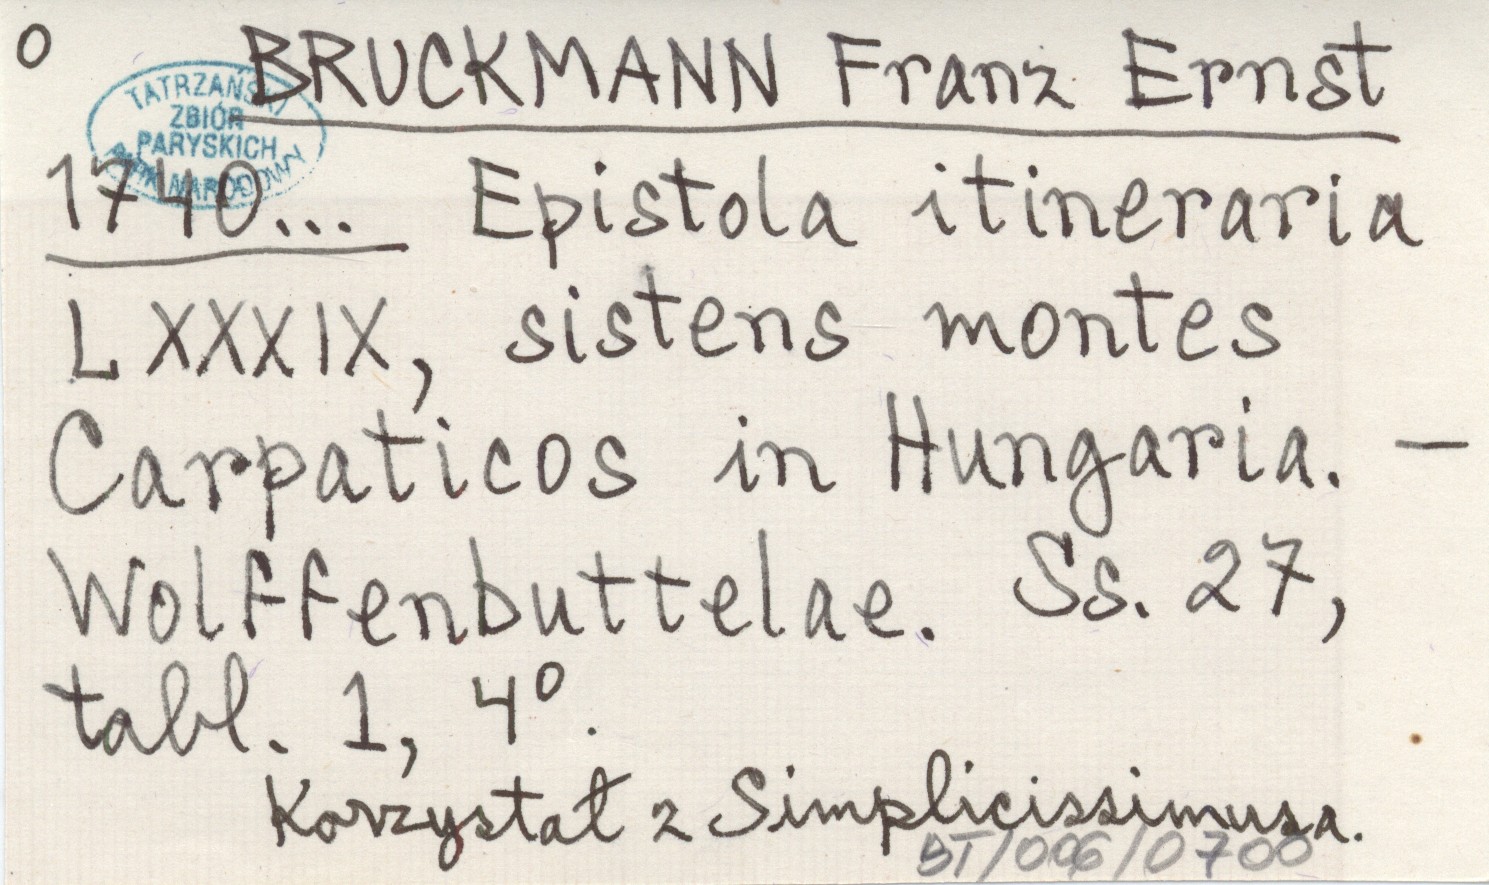 o BRUCKMANN Franz Ernst
TATRZAŃSKI
ZBIÓR
PARYSKICH
PARK NARODOWY
1740... Epistola itineraria
LXXXIX, sistens montes
Carpaticos in Hungaria. —
Wolffenbuttelae. Ss. 27,
tabl. 1, 4°.
Korzystał z Simplicissimusa.
BT/006/0700